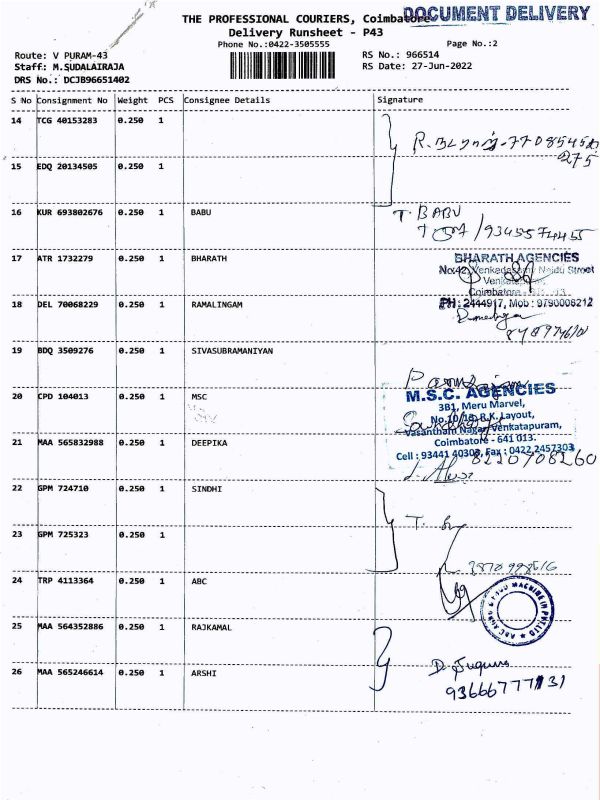 THE PROFESSIONAL COURIERS, Coimbatore
DOCUMENT DELIVERY
Delivery Runsheet - P43
Phone No.:0422-3505555
Page No.:2
Route: V PURAM-43
RS No.: 966514
Staff: M.SUDALAIRAJA
RS Date: 27-Jun-2022
DRS No.: DCJB96651402
S No Consignment No Weight PCS Consignee Details Signature
14 TCG 40153283 0.250 1
15 EDQ 20134505 0.250 1
16 KUR 693802676 0.250 1 BABU
T. BABU
9345574455
17 ATR 1732279 0.250 1 BHARATH
BHARATH AGENCIES
No:42, Venkedasamy Naidu Street
Coimbatore
PH: 2444917, Mob: 9790008212
18 DEL 70068229 0.250 1 RAMALINGAM
19 BDQ 3509276 0.250 1 SIVASUBRAMANIYAN
20 CPD 104013 0.250 1 MSC
M.S.C. AGENCIES
3B1, Meru Marvel,
No.10/18, R.K. Layout,
Vasantham Nagar, Venkatapuram,
Coimbatore - 641 013.
Cell : 93441 40303, Fax : 0422 2457303
21 MAA 565832988 0.250 1 DEEPIKA
8220708260
22 GPM 724710 0.250 1 SINDHI
23 GPM 725323 0.250 1
24 TRP 4113364 0.250 1 ABC
25 MAA 564352886 0.250 1 RAJKAMAL
26 MAA 565246614 0.250 1 ARSHI